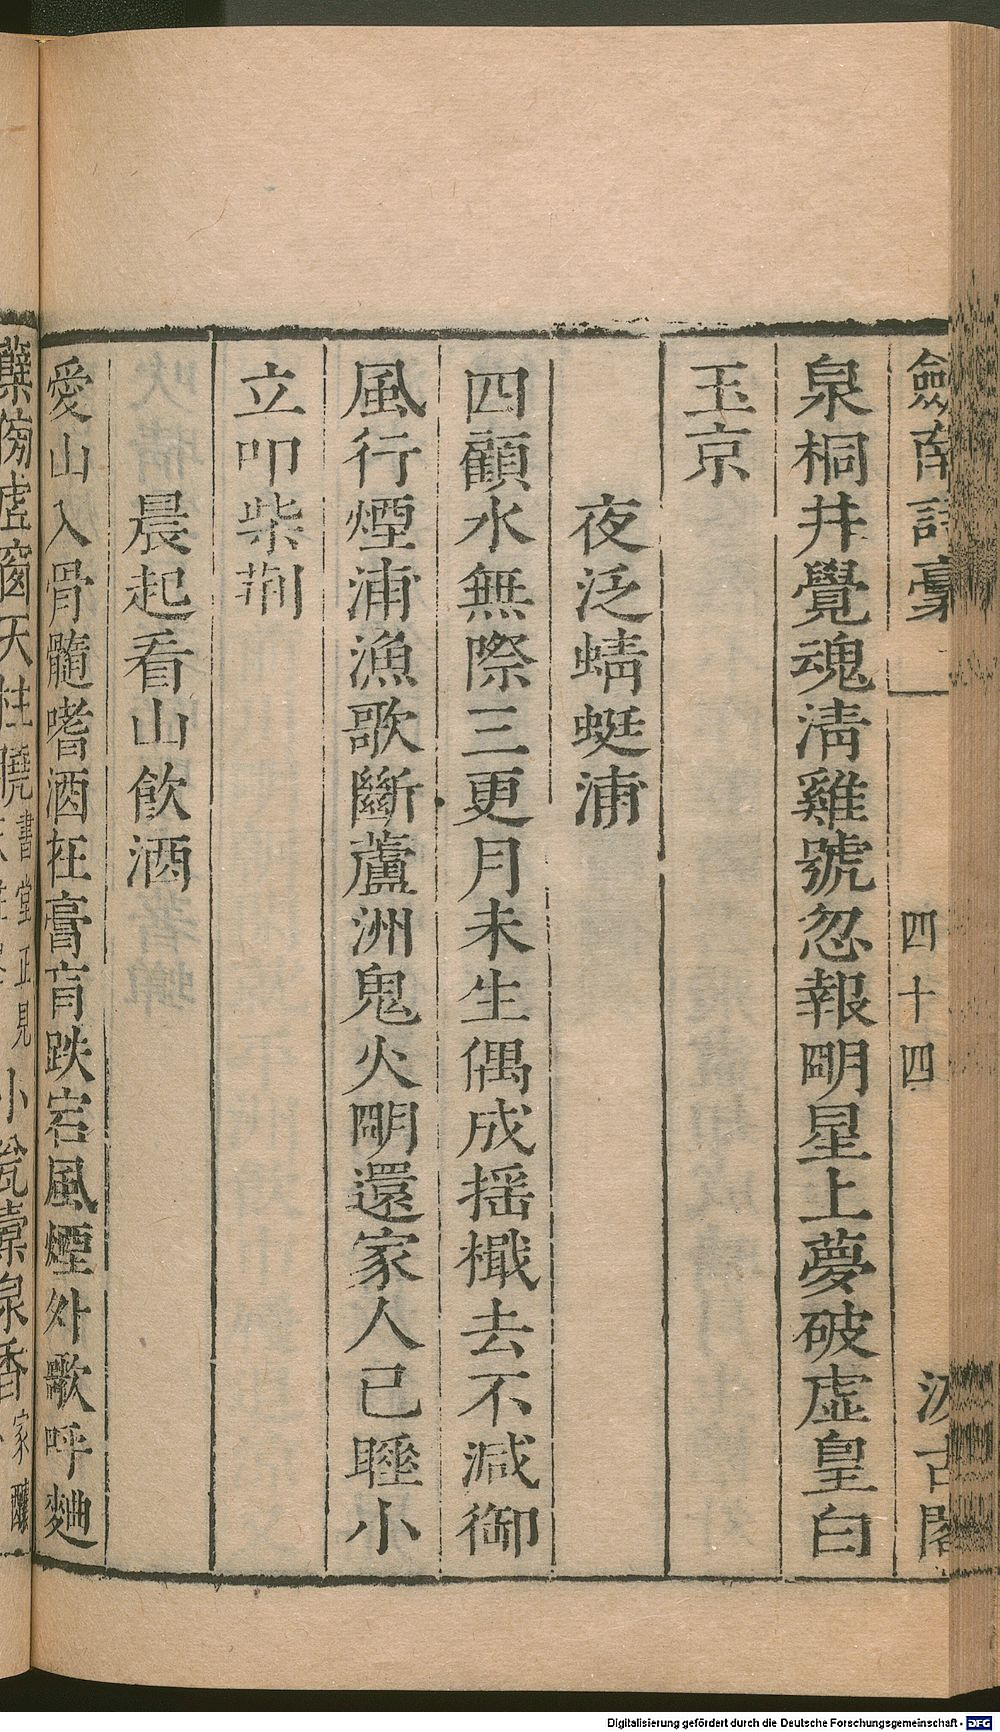 劒南詩稾
四十四
汲古閣
泉桐井覺魂淸雞號忽報明星上夢破虛皇白
玉京
夜泛蜻蜓浦
四顧水無際三更月未生偶成搖檝去不減御
風行煙浦漁歌斷蘆洲鬼火明還家人已睡小
立叩柴荆
晨起看山飮酒
愛山入骨髓嗜酒在膏肓跌宕風煙外歌呼麯
蘖傍虛窗天柱曉
書堂正見
小瓮槖泉香
家釀
Digitalisierung gefördert durch die Deutsche Forschungsgemeinschaft - DFG